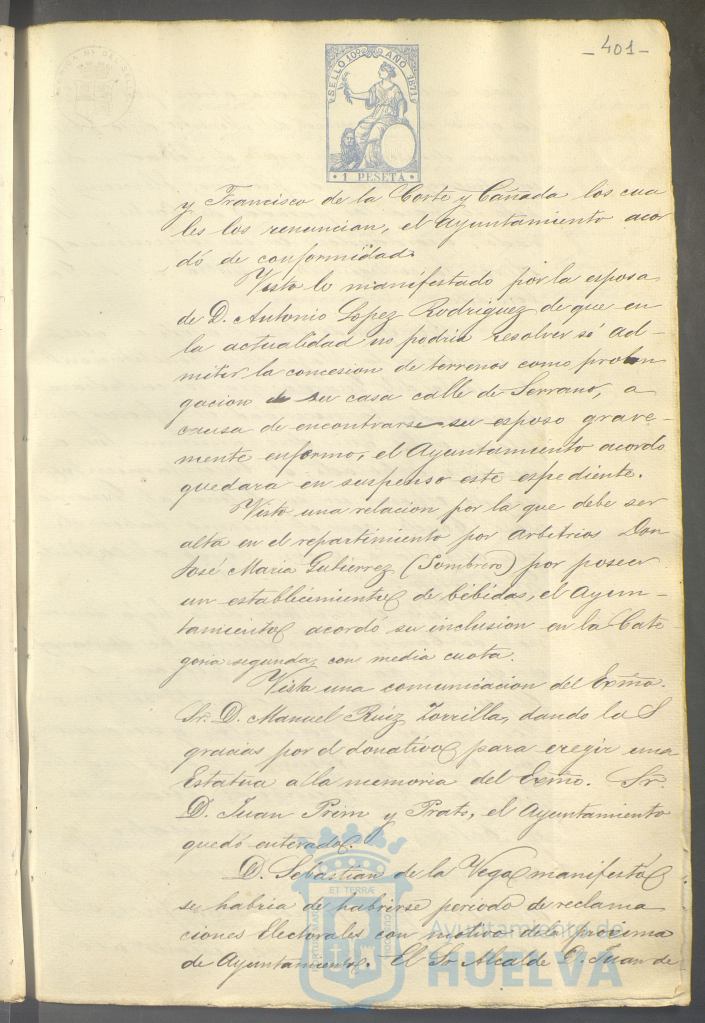 -401-
SELLO 10º AÑO 1871
1 PESETA
y Francisco de la Corte y Cañada los cua
les los renuncian, el Ayuntamiento acor
dó de conformidad.
Visto lo manifestado por la esposa
de D. Antonio Lopez Rodriguez de que en
la actualidad no podria resolver sé ad-
mitir la concesion de terrenos como prolon
gacion de su casa calle de Serrano, a
causa de encontrarse su esposo grave-
mente enfermo, el Ayuntamiento acordo
quedara en suspenso este espediente.
Visto una relacion por la que debe ser
alta en el repartimiento por arbitrios Don
José Maria Gutierrez (Sombrero) por poseer
un establecimiento de bebidas, el Ayun-
tamiento acordó su inclusion en la Cate-
goria segunda, con media cuota.
Vista una comunicacion del Exmo.
Sr. D. Manuel Ruiz Zorrilla, dando las
gracias por el donativo para eregir una
Estatua á la memoria del Exmo. Sr.
D. Juan Prim y Prats, el Ayuntamiento
quedó enterado.
D. Sebastian de la Vega manifestó
se habria de habrirse periodo de reclama
ciones electorales con de la procsima
de Ayuntamiento. El Sr Alcalde D. Juan de
ET TERRÆ
Ayuntamiento de
HUELVA